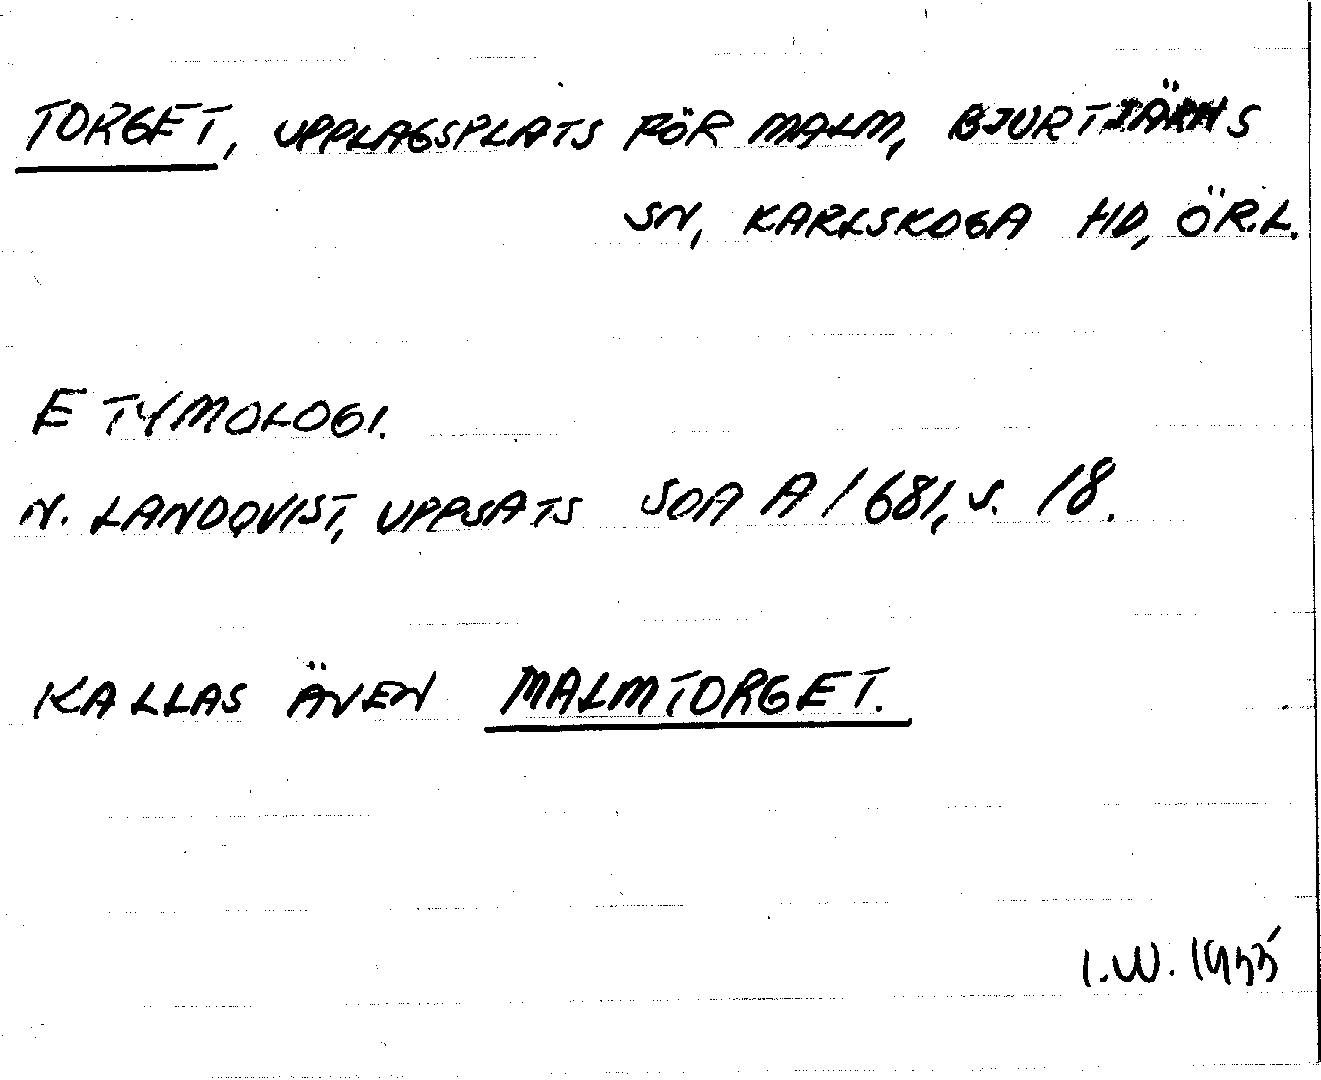 TORGET, UPPLAGSPLATS FÖR MALM, BJURTJÄRNS
SN, KARLSKOGA HD, ÖR.L.
ETYMOLOGI.
N. LANDQVIST, UPPSATS SOA A1681, S. 18.
KALLAS ÄVEN MALMTORGET.
I.W. 1955